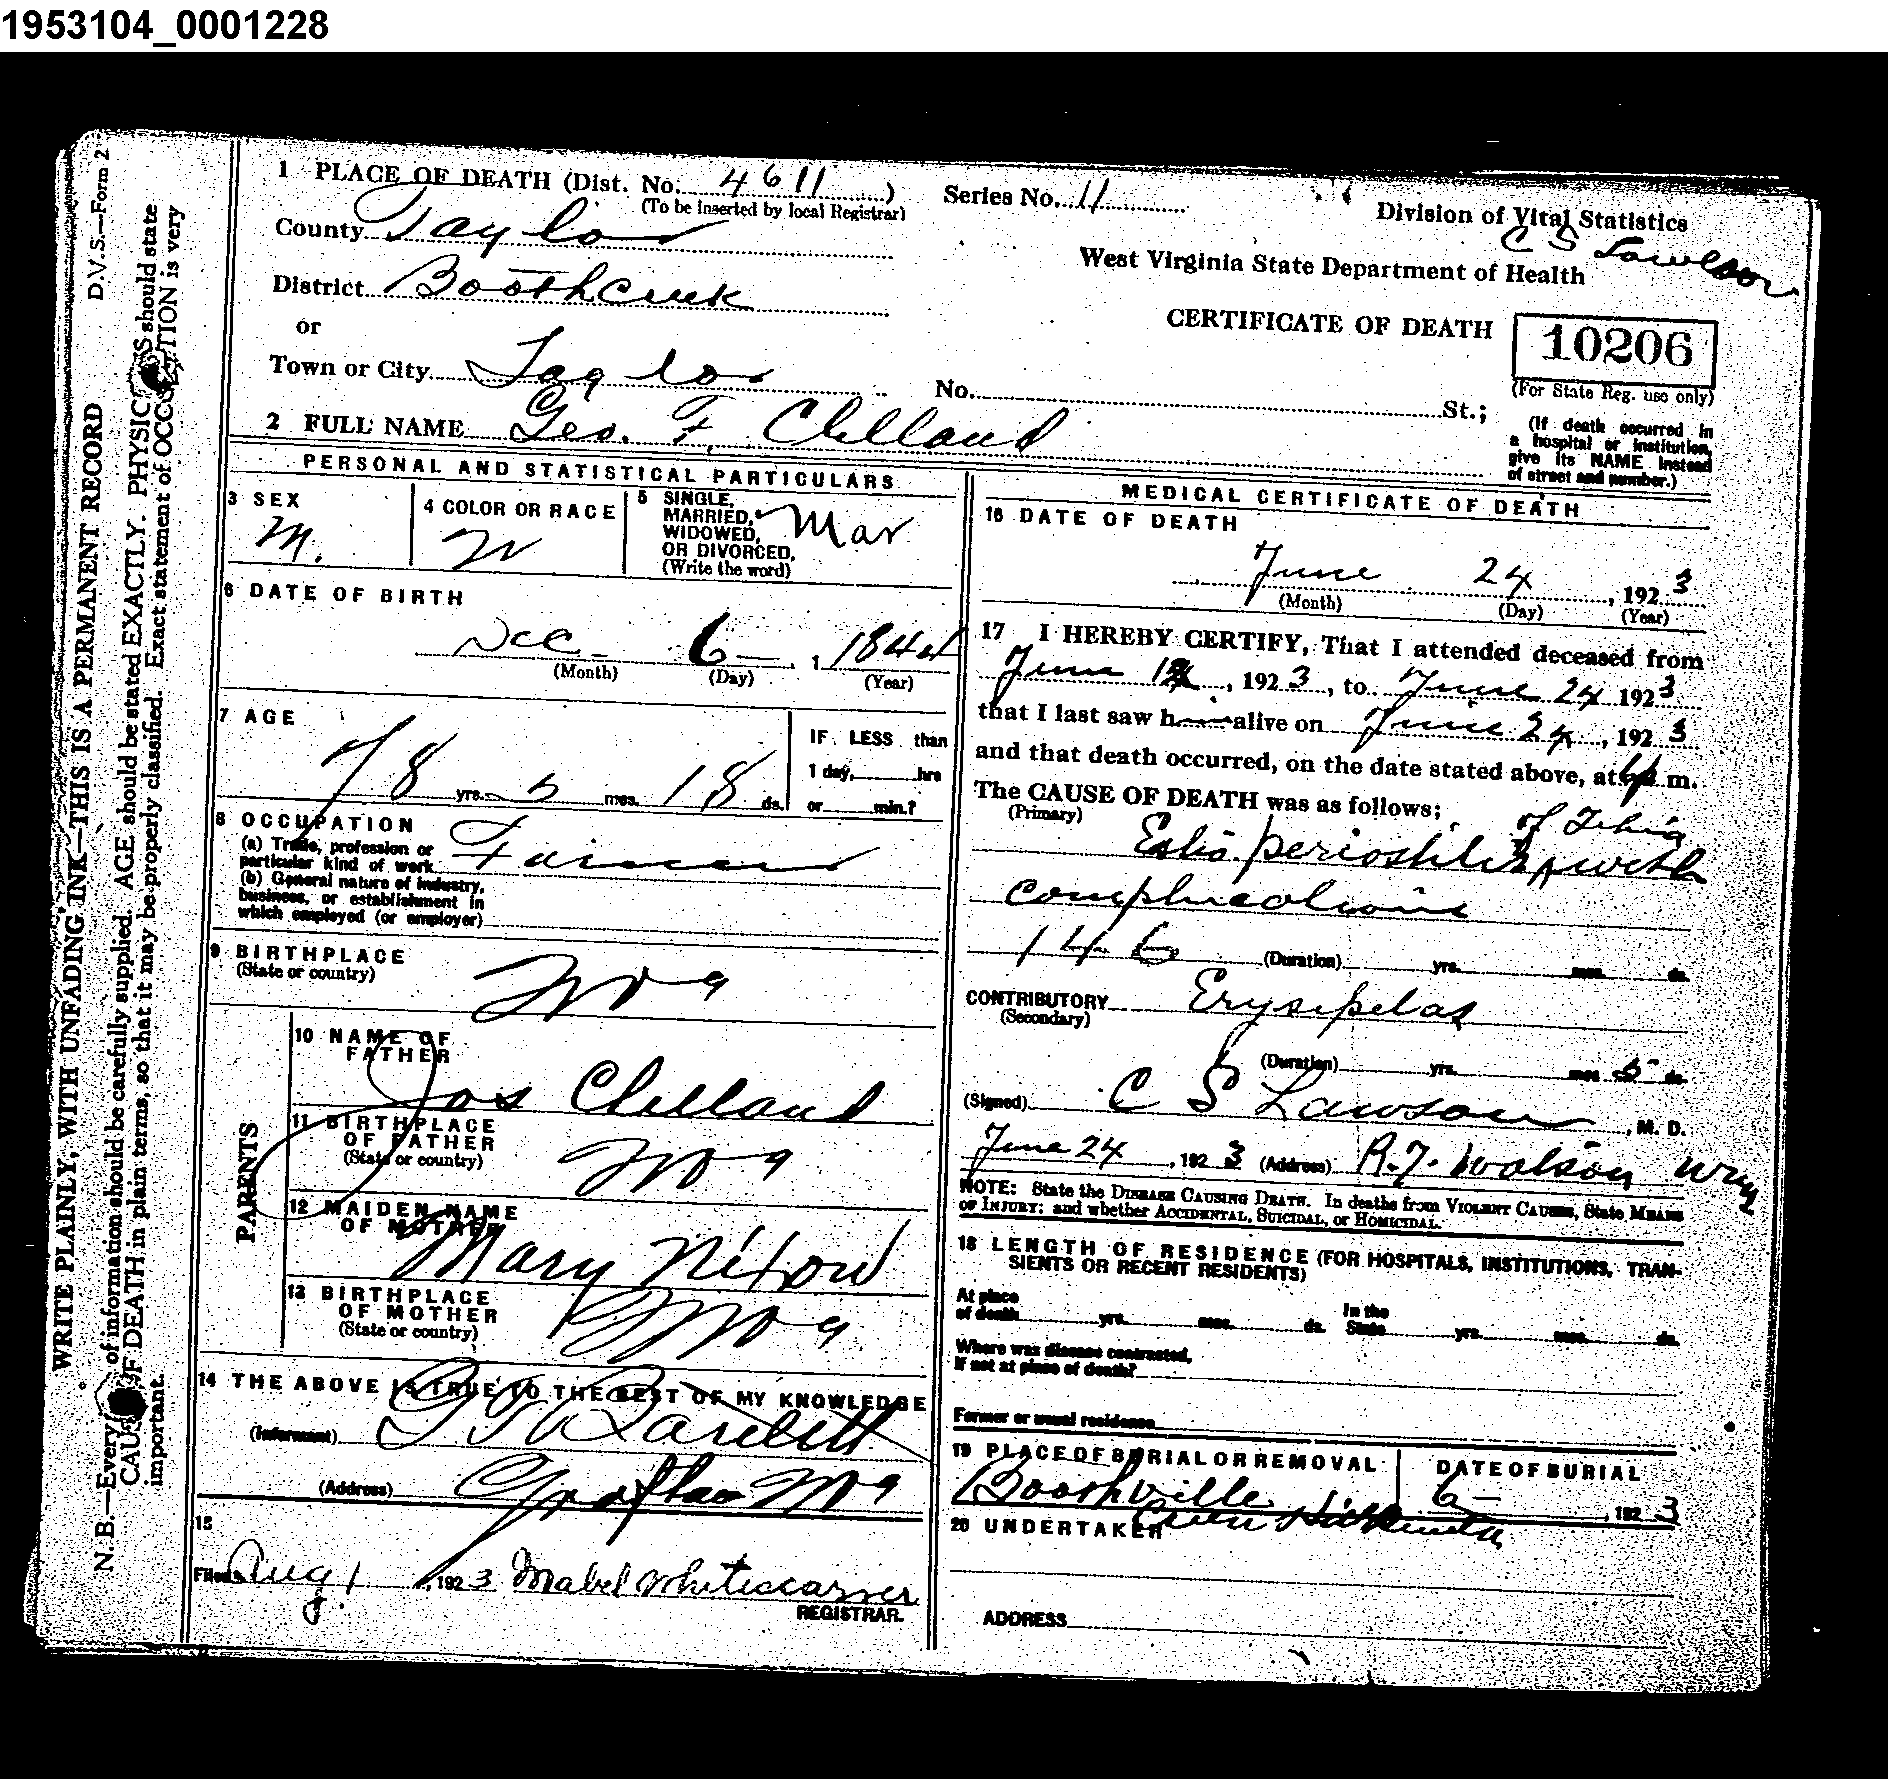 1953104_0001228
D.V.S.—Form 2
WRITE PLAINLY, WITH UNFADING INK—THIS IS A PERMANENT RECORD
N. B.—Every of information should be carefully supplied. AGE should be stated EXACTLY. PHYSIC S should state
CAUS F DEATH in plain terms, so that it may be properly classified. Exact statement of OCCU TION is very
important.
1 PLACE OF DEATH (Dist. No. 4611 )
(To be inserted by local Registrar)
Series No. 11
Division of Vital Statistics
C S Lawson
County Taylor
West Virginia State Department of Health
District Boothcreek
CERTIFICATE OF DEATH
10206
(For State Reg. use only)
or
Town or City Taylor
No. St.;
(If death occurred in
a hospital or institution,
give its NAME instead
of street and number.)
2 FULL NAME Geo. F. Clelland
PERSONAL AND STATISTICAL PARTICULARS
3 SEX
M.
4 COLOR OR RACE
W
5 SINGLE,
MARRIED,
WIDOWED,
OR DIVORCED,
(Write the word)
Mar
6 DATE OF BIRTH
Dec 6 , 1844
(Month) (Day) (Year)
7 AGE
78 yrs. 5 mos. 18 ds.
IF LESS than
1 day, hrs
or min.?
8 OCCUPATION
(a) Trade, profession or
particular kind of work
Farmer
(b) General nature of industry,
business, or establishment in
which employed (or employer)
9 BIRTHPLACE
(State or country)
W Va
PARENTS
10 NAME OF
FATHER
Jos Clelland
11 BIRTHPLACE
OF FATHER
(State or country)
W Va
12 MAIDEN NAME
OF MOTHER
Mary Nixon
13 BIRTHPLACE
OF MOTHER
(State or country)
W Va
14 THE ABOVE IS TRUE TO THE BEST OF MY KNOWLEDGE
(Informant)
(Address) Grafton W Va
15
Filed Aug 1 , 1923 Mabel Whitescarver
REGISTRAR.
MEDICAL CERTIFICATE OF DEATH
16 DATE OF DEATH
June 24 , 1923
(Month) (Day) (Year)
17 I HEREBY CERTIFY, That I attended deceased from
June , 1923, to June 24 1923
that I last saw h alive on June 24, 1923
and that death occurred, on the date stated above, at m.
The CAUSE OF DEATH was as follows:
(Primary)
of Tibia
periostitis with
complications
146
(Duration) yrs. mos. ds.
CONTRIBUTORY Erysipelas
(Secondary)
(Duration) yrs. mos 5 ds.
(Signed) C S Lawson , M. D.
June 24 , 1923 (Address)
NOTE: State the DISEASE CAUSING DEATH. In deaths from VIOLENT CAUSES, State MEANS
OF INJURY; and whether ACCIDENTAL, SUICIDAL, or HOMICIDAL.
18 LENGTH OF RESIDENCE (FOR HOSPITALS, INSTITUTIONS, TRAN-
SIENTS OR RECENT RESIDENTS)
At place
of death yrs. mos. ds.
In the
State yrs. mos. ds.
Where was disease contracted,
If not at place of death?
Former or usual residence
19 PLACE OF BURIAL OR REMOVAL
Boothville
DATE OF BURIAL
6- , 1923
20 UNDERTAKER
ADDRESS